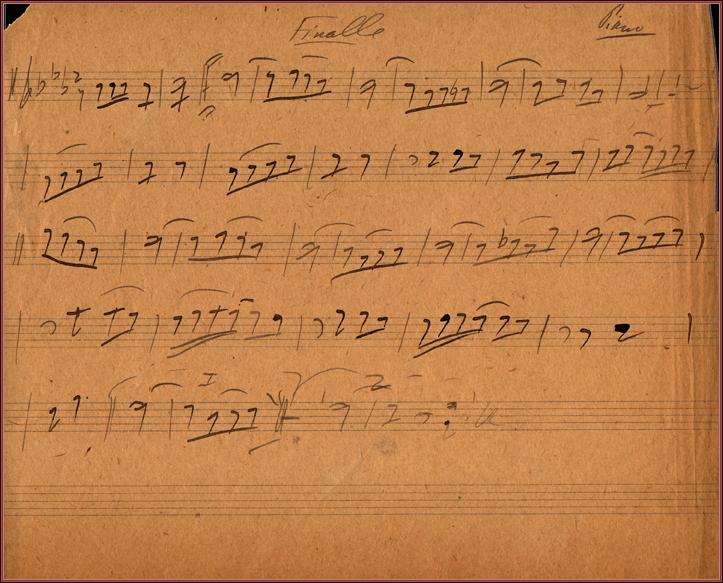 Finalle
Piano
I
2